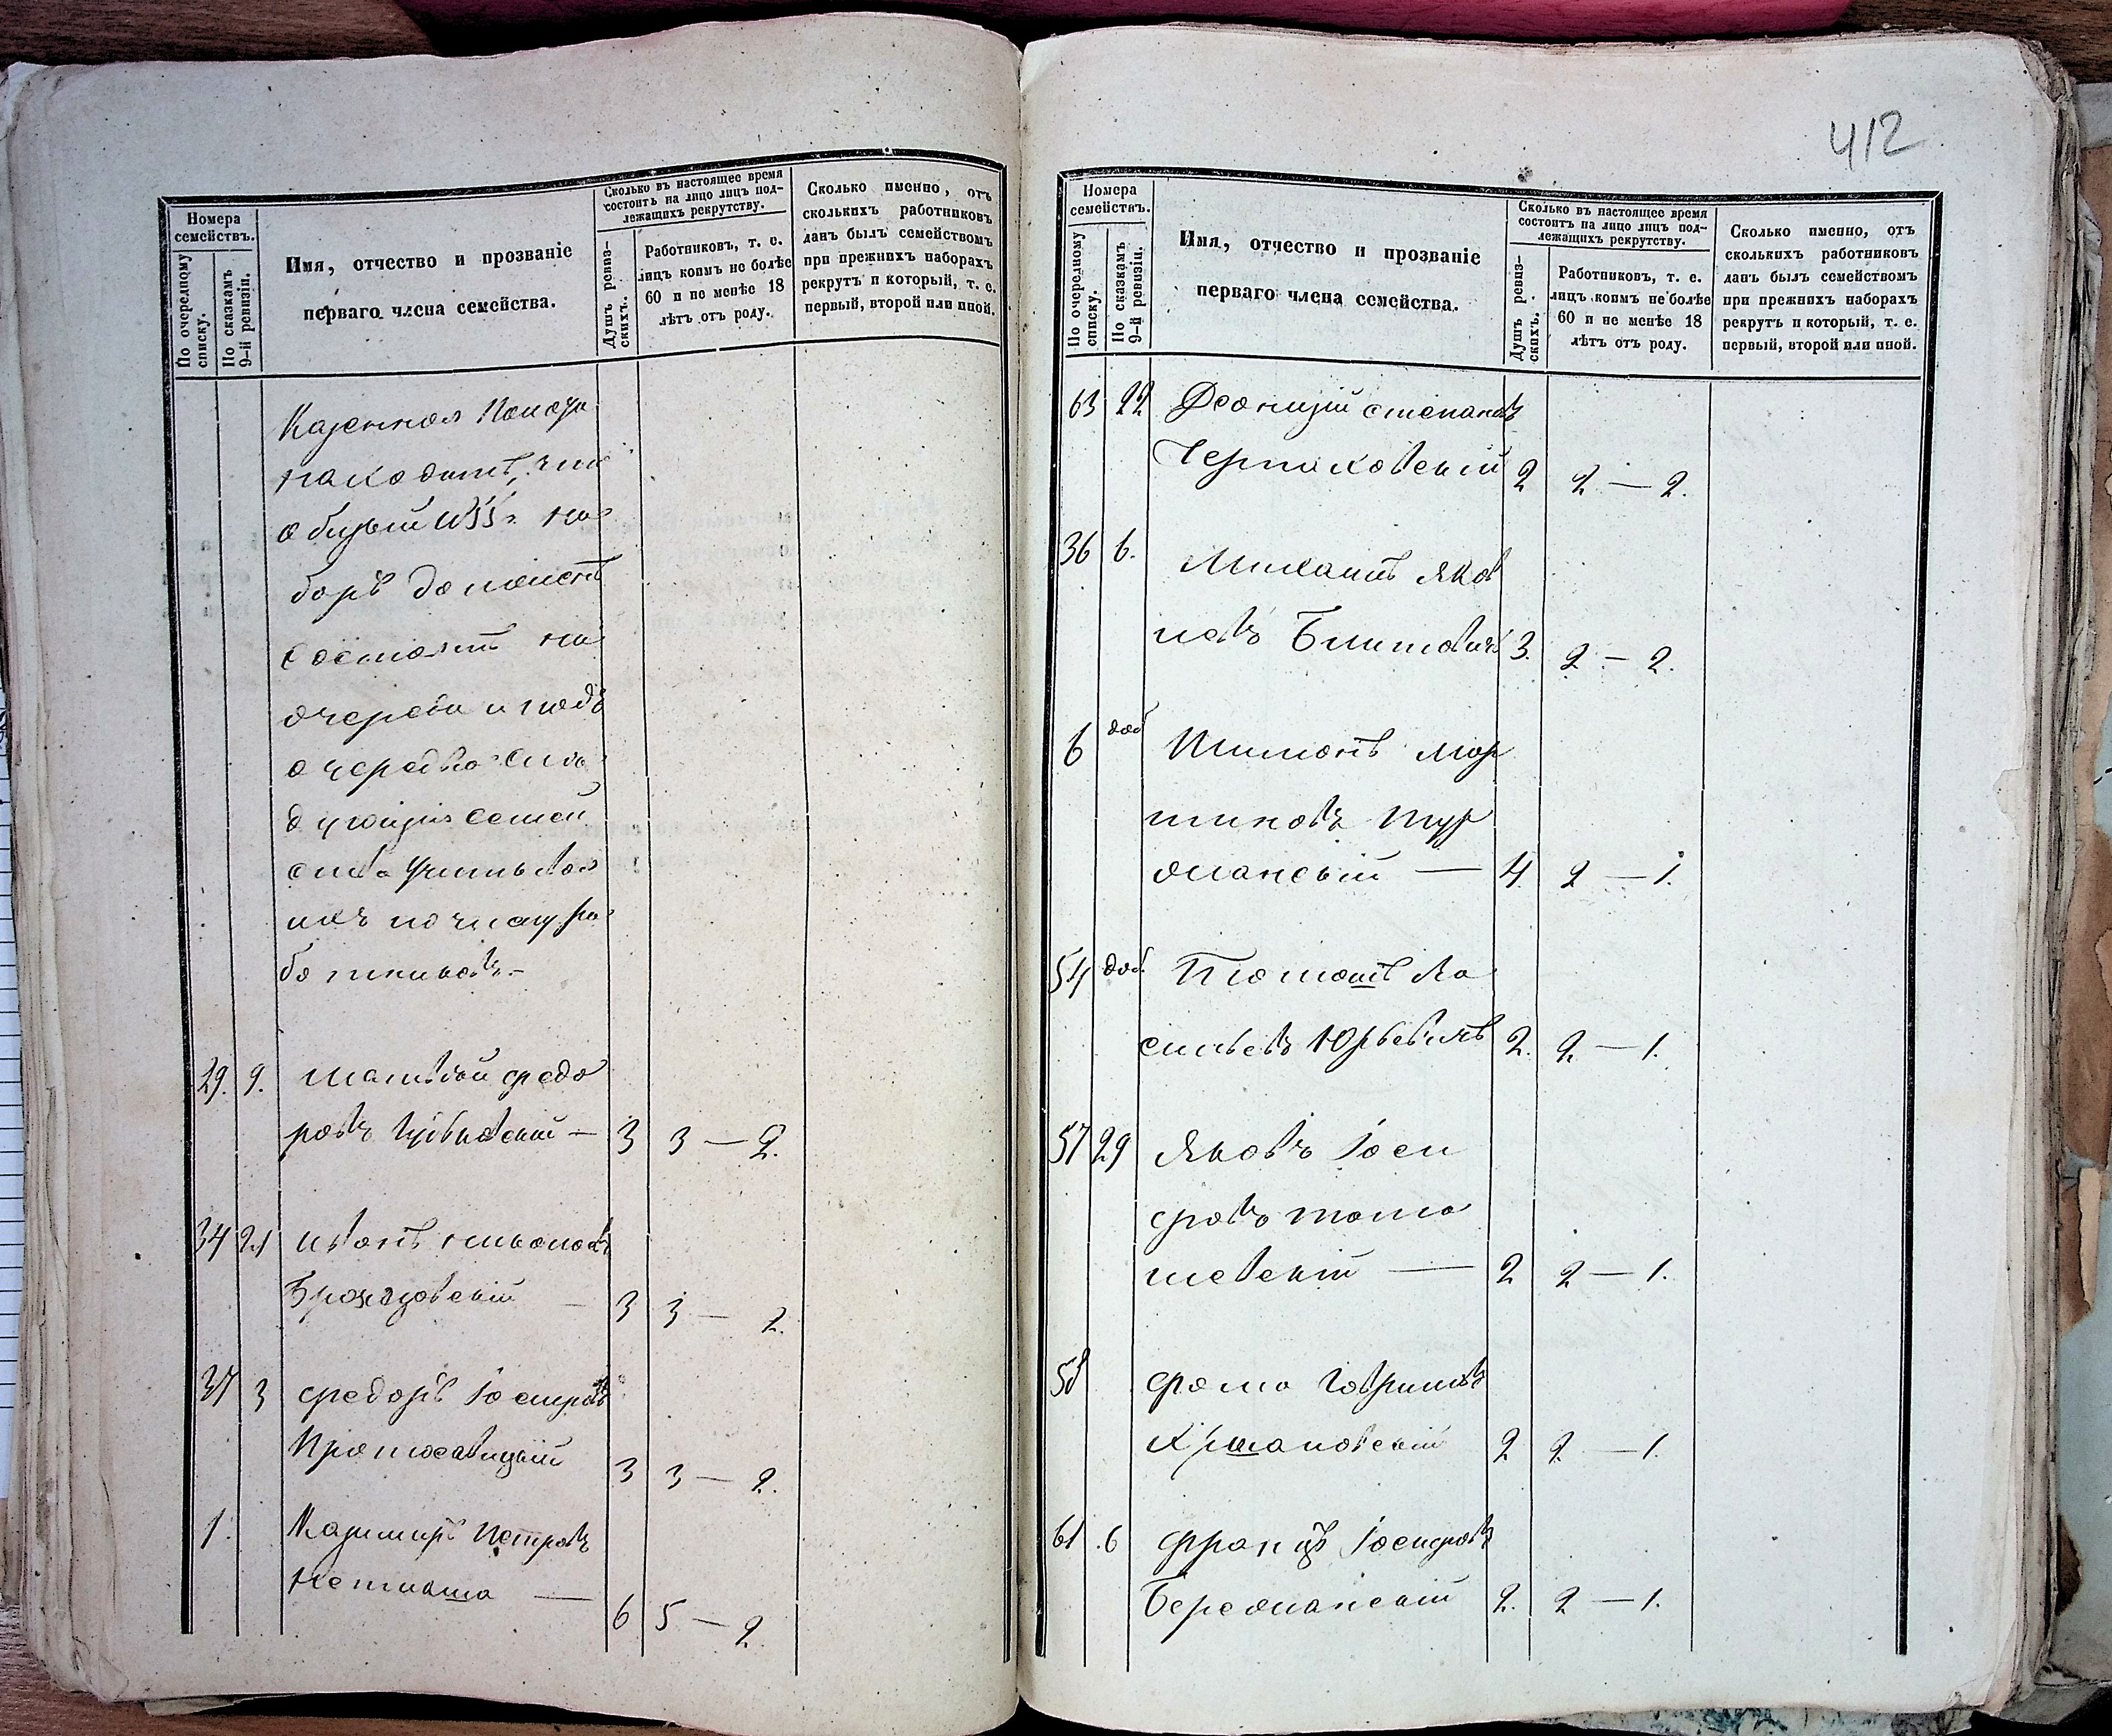 Номера семействъ.
По очередному списку.
По сказкамъ 9-й ревизіи.
Имя, отчество и прозваніе
перваго члена семейства.
Сколько въ настоящее время
состоитъ на лицо лицъ под-
лежащихъ рекрутству.
Душъ ревиз-
скихъ.
Работниковъ, т. е.
лицъ коимъ не болѣе
60 и не менѣе 18
лѣтъ отъ роду.
Сколько именно, отъ
сколькихъ работниковъ
данъ былъ семействомъ
при прежнихъ наборахъ
рекрутъ и который, т. е.
первый, второй или иной.
Казенная Палата
находитъ, что
въ на
боръ
состоятъ на
очереди и подъ
очередью слѣ
дующія семей
ства
ихъ по числу ра
ботниковъ.
29. 9. Матвѣй Федо
ровъ — 3 3 — 2.
34 21 Иванъ Николаевъ
3 3 — 2.
37 3 Федоръ Іосифовъ
Протосавицкій 3 3 — 2.
1. Казимиръ Петровъ
— 6 5 — 2
412
Номера
семействъ.
По очередному
списку.
По сказкамъ
9-й ревизіи.
Имя, отчество и прозваніе
перваго члена семейства.
Сколько въ настоящее время
состоитъ на лицо лицъ под-
лежащихъ рекрутству.
Душъ ревиз-
скихъ.
Работниковъ, т. е.
лицъ коимъ не болѣе
60 и не менѣе 18
лѣтъ отъ роду.
Сколько именно, отъ
сколькихъ работниковъ
данъ былъ семействомъ
при прежнихъ наборахъ
рекрутъ и который, т. е.
первый, второй или иной.
63 22 Деонизій Степановъ
Черняховскій 2 2 — 2.
36 6. Михаилъ Яков
левъ 3. 2 — 2.
6 доб Шимонъ Мар
тиновъ Тур
жанскій — 4. 2 — 1.
54 доб. Игнатъ Ва
сильевъ Юрьевичъ 2. 2 — 1.
57 29 Яковъ Іоси
фовъ Тома
шевскій — 2 2 — 1.
58 Фома Гавриловъ
Хршановскій 2 2 — 1.
61 6 Францъ Іосифовъ
Бережанскій 2. 2 — 1.